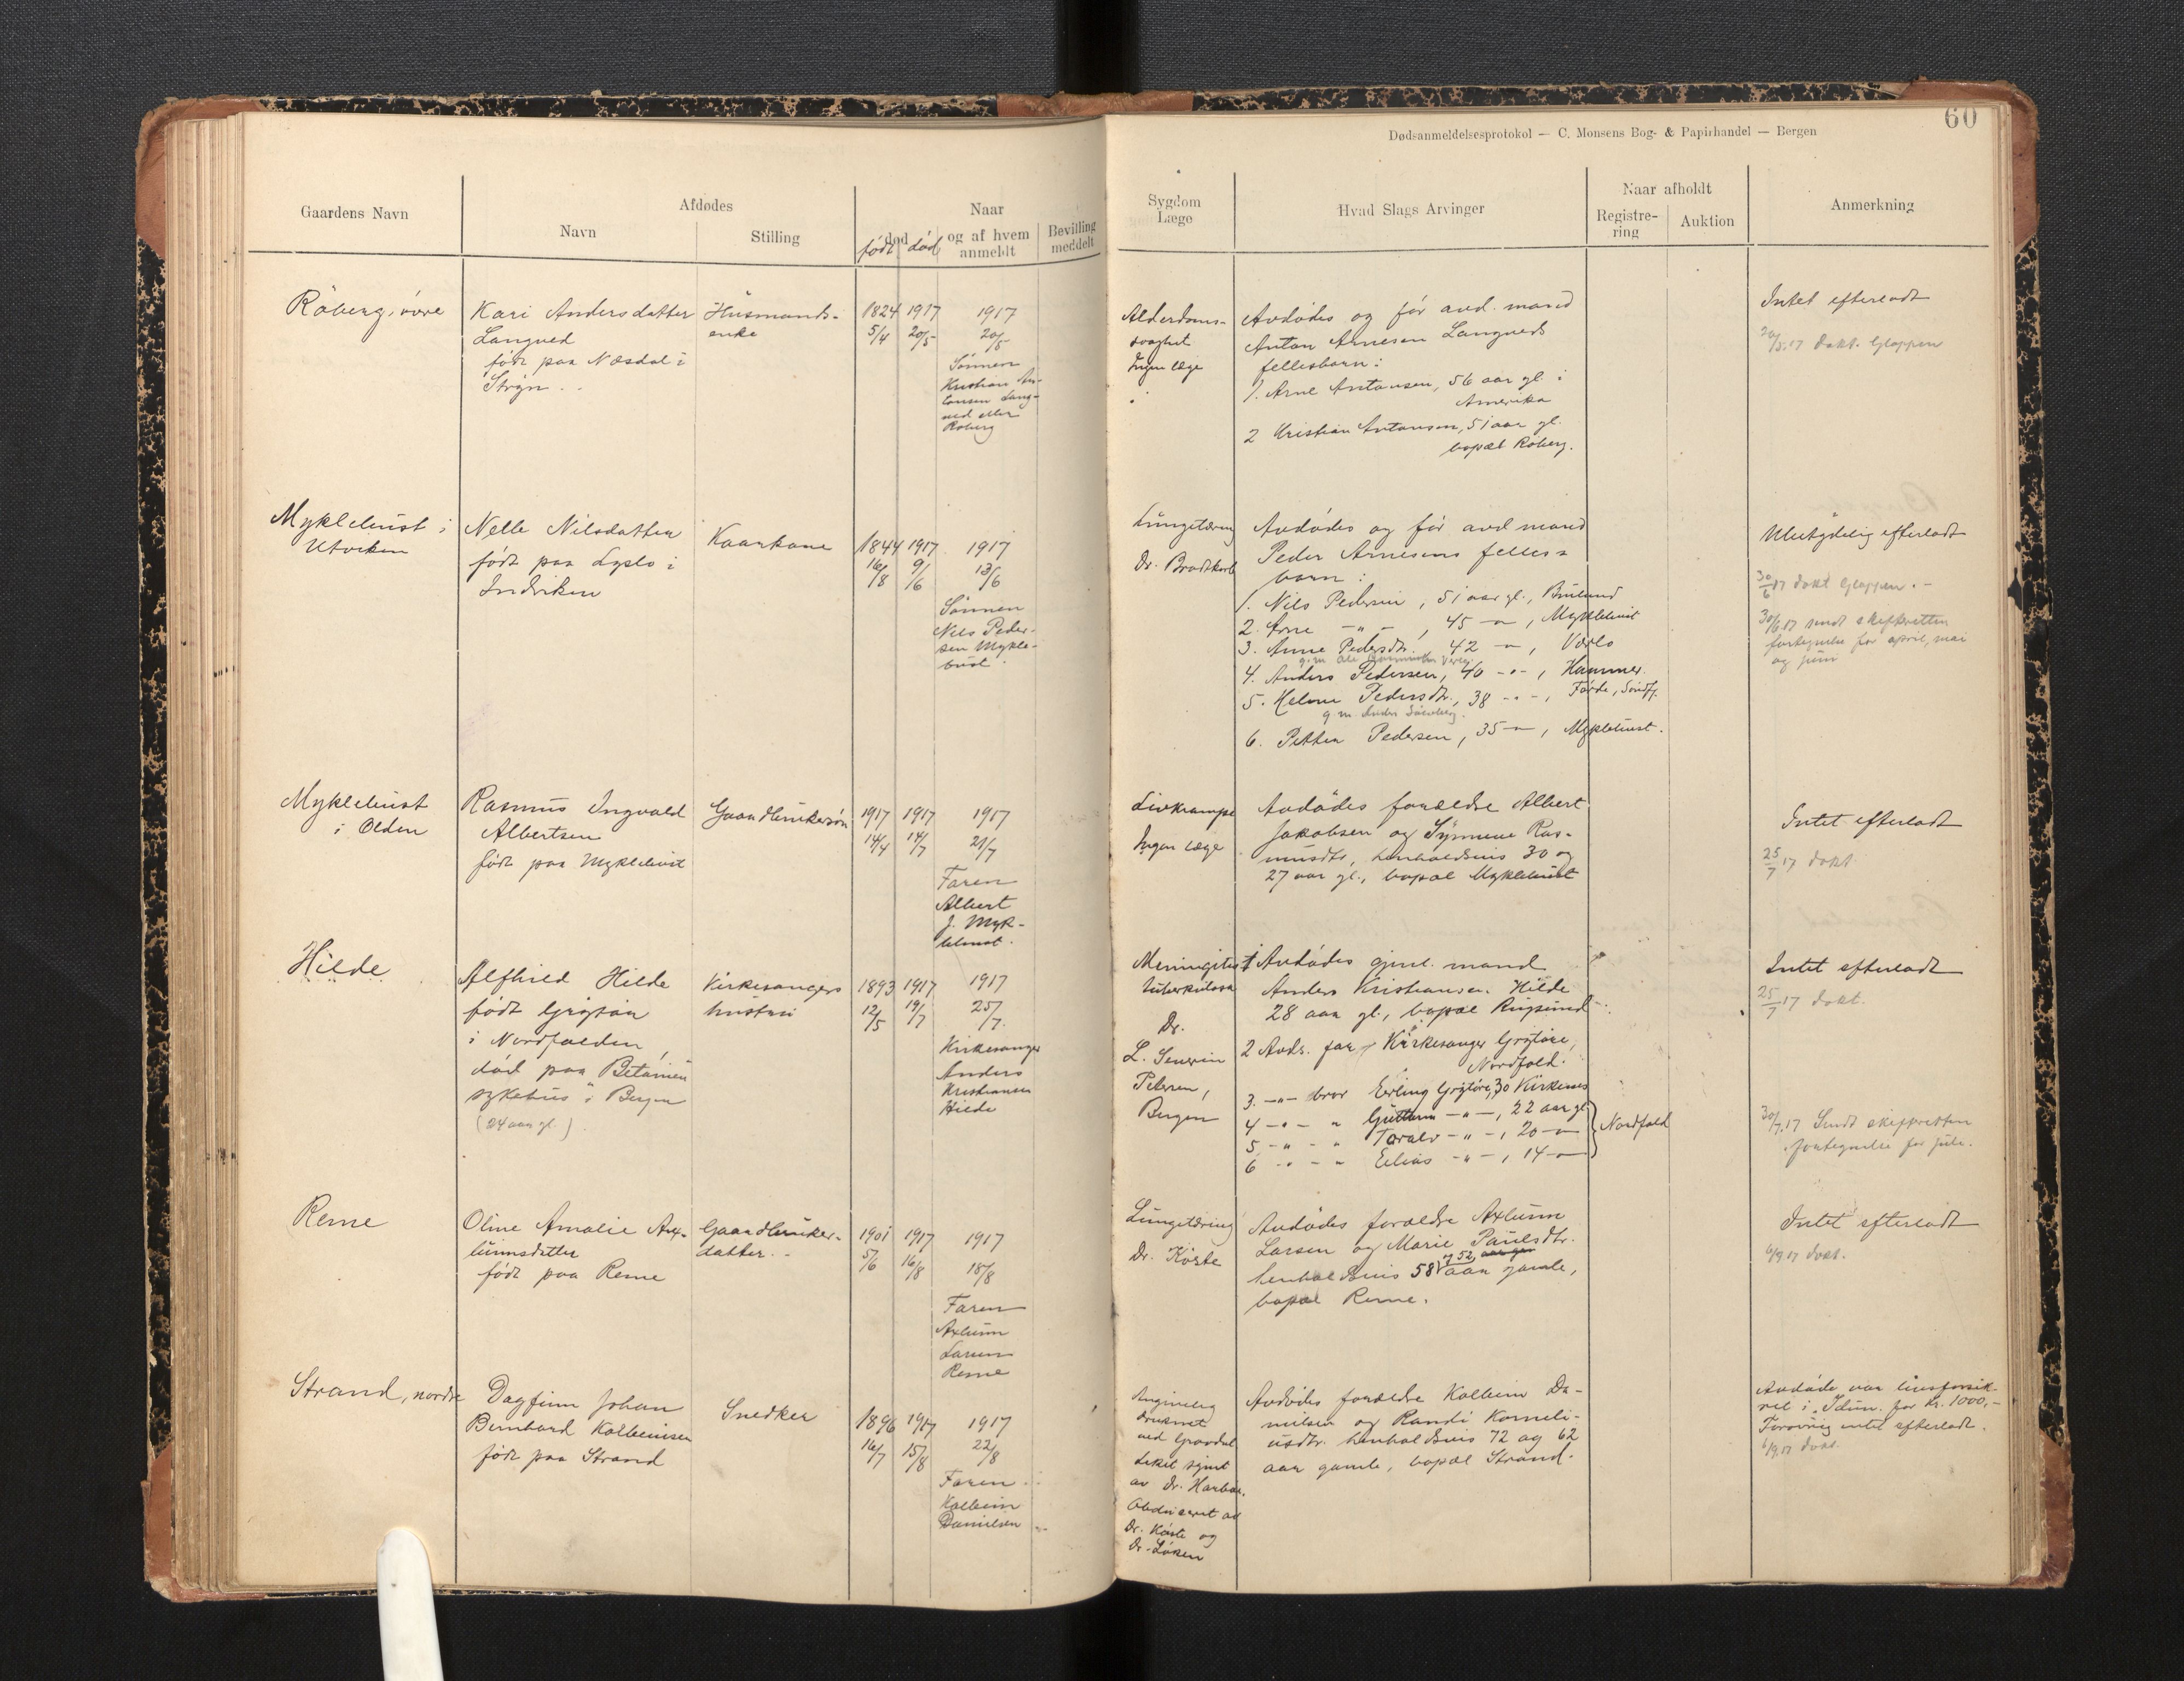 60
Dødsanmeldelsesprotokol — C. Monsens Bog- & Papirhandel — Bergen
Gaardens Navn
Afdødes
Navn
Stilling
Naar
død
født død
og af hvem
anmeldt
Bevilling
meddelt
Sygdom
Læge
Hvad Slags Arvinger
Naar afholdt
Registre-
ring
Auktion
Anmerkning
Röberg, övre
Kari Andersdatter
Langved
född paa Næsdal i
Stryn
Husmands-
enke
1824 1917 1917
5/4 20/5 20/5
Sönnen
Kristian An-
tonsen Lang-
ved eller
Röberg
Alderdoms-
svaghet
Ingen læge
Avdödes og för avd. mand
Anton Arnesen Langveds
fellesbarn:
1. Arne Antonsen, 56 aar gl. i
Amerika
2 Kristian Antonsen, 51 aar gl.
bopæl Röberg.
Intet efterladt
20/5.17 dokt. Gloppen
Myklebust i
Utviken
Nelle Nilsdatter
född paa
i
Indviken
Kaarkone
1844 1917 1917
16/8 9/6 13/6
Sönnen
Nils Peder-
sen Mykle-
bust.
Lungetæring
Dr. Brodtkorb
Avdödes og för avd mand
Peder Arnesens felles-
barn:
1. Nils Pedersen, 51 aar gl.,
2. Arne — " —, 45 — " —, Myklebust
3. Anne Pedersdtr. 42 — " —,
g. m. Ole
4. Anders Pedersen, 40 - " -, Hammer.
5. Helene Pedersdtr., 38 - " -, Förde, Söndfj.
g. m. Anders
6. Petter Pedersen, 35 — " —, Myklebust.
Ubetydelig efterladt
30/6 17 dokt Gloppen. —
30/6.17 sendt skifteretten
fortegnelse for april, mai
og juni
Myklebust
i Olden
Rasmus Ingvald
Albertsen
född paa Myklebust
Gaardbrukersön
1917 1917 1917
14/4 14/7 21/7
Faren
Albert
J. Myk-
lebust.
Livkrampe
Ingen læge
Avdödes forældre Albert
Jakobsen og Synneve Ras-
musdtr, henholdsvis 30 og
27 aar gl., bopæl Myklebust
Intet efterladt
25/7 17 dokt.
Hilde
Alfhild Hilde
född Grytöir
i Nordfolden,
död paa Betanien
sykehus i Bergen
(24 aar gl.)
Kirkesangers
hustru
1893 1917 1917
12/5 19/7 25/7
Kirkesanger
Anders
Kristiansen
Hilde
Meningitis
tuberkulosa
Dr.
L. Severin
Petersen,
Bergen
1 Avdödes gjenl. mand
Anders Kristiansen Hilde
28 aar gl., bopæl Rugsund
2 Avds. far, Kirkesanger Grytöir,
Nordfold.
3. — " — bror Erling Grytöir, 30 Kirkenes
4 — " — " Guttorm — " —, 22 aar gl
5 — " — " Toralv — " —, 20 — " —
6 — " — " Eilias — " —, 14 — " —
Nordfold
Intet efterladt
25/7 17 dokt.
30/7.17 Sendt skifteretten
fortegnelse for juli.
Reme
Oline Amalie Ax-
lunnsdatter
född paa Reme
Gaardbruker-
datter.
1901 1917 1917
5/6 16/8 18/8
Faren
Axlunn
Larsen
Reme
Lungetæring
Dr. Körte
Avdödes forældre Axlunn
Larsen og Marie Paulsdtr.
henholdsvis 58 og 52 aar gamle,
bopæl Reme.
Intet efterladt
6/9.17 dokt.
Strand, nordre
Dagfinn Johan
Bernhard Kolbeinsen
född paa Strand
Snedker
1896 1917 1917
16/7 15/8 22/8
Faren
Kolbein
Danielsen
Angivelig
druknet
ved Gravdal
Liket synet
av Dr. Harbir.
Obduceret av
Dr. Körte og
Dr. Löken
Avdödes forældre Kolbein Da-
nielsen og Randi Korneli-
usdtr. henholdsvis 72 og 62
aar gamle, bopæl Strand.
Avdöde var livsforsik-
ret i "Idun" for Kr. 1000,-
Forövrig intet efterladt.
6/9.17 dokt.